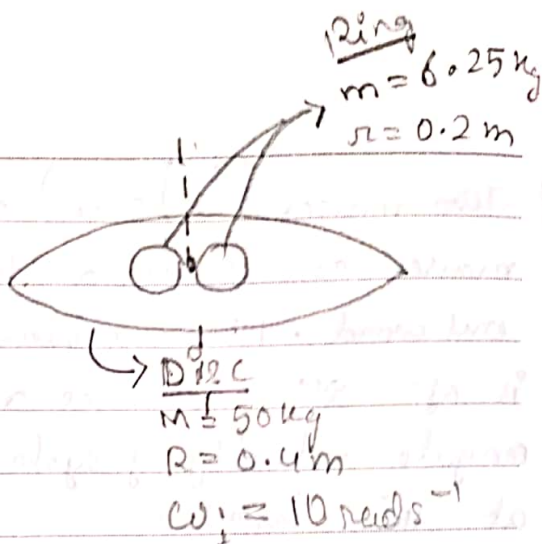 Ring
m = 6.25 kg
r = 0.2 m
Disc
M = 50 kg
R = 0.4 m
ωi = 10 rad s⁻¹